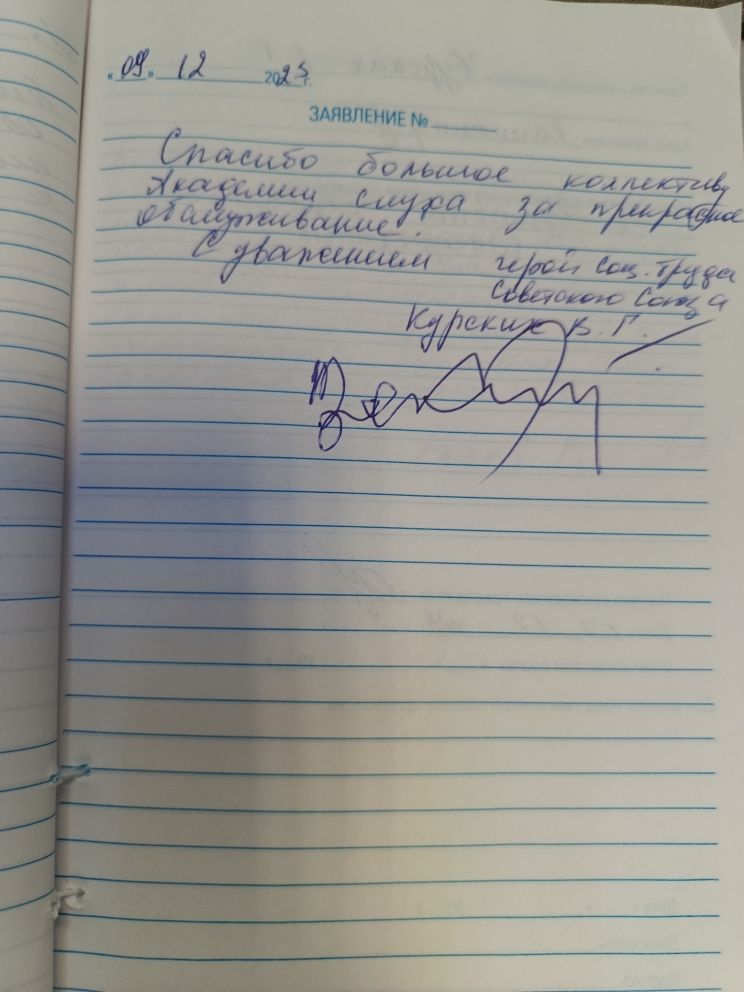 «09» 12 2025г.
ЗАЯВЛЕНИЕ №
Спасибо большое коллективу
Академии слуха за прекрасное
обслуживание.
С уважением герой Соц. Труда
Советского Союза
Курских В. Г.